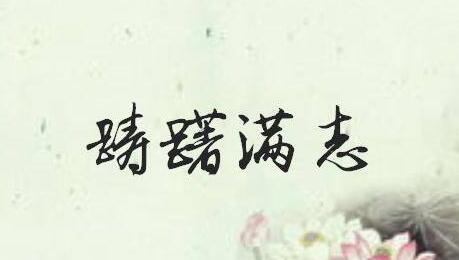 踌躇满志